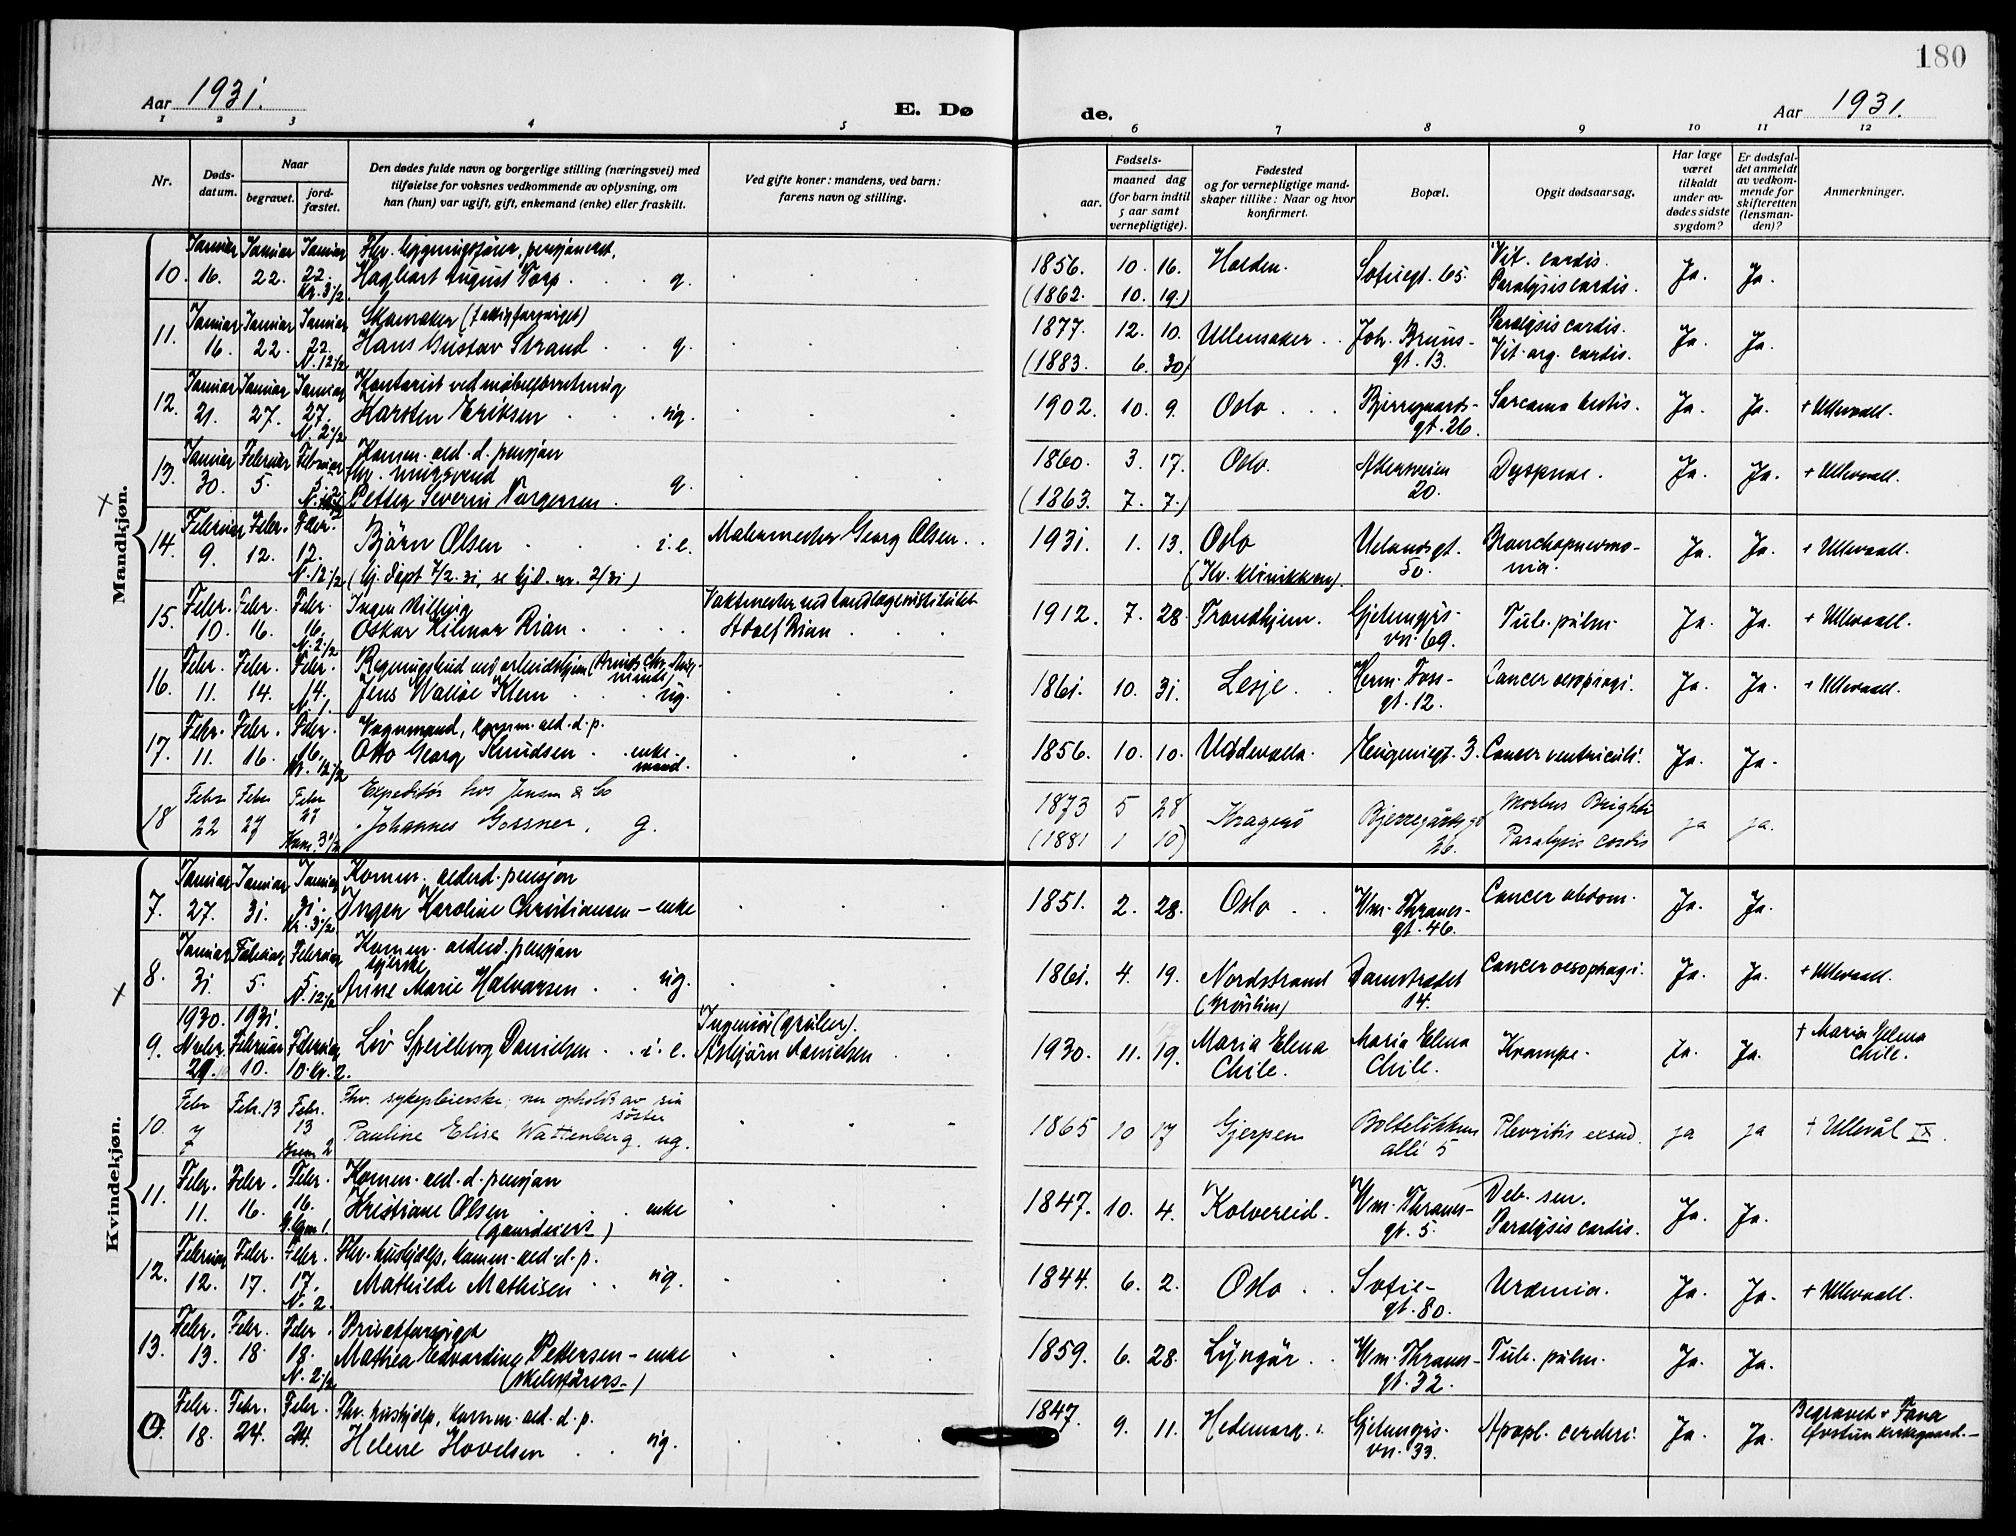 180
Aar 1931.
E. Dø
de.
Aar 1931.
1 2 3 4 5 6 7 8 9 10 11 12
Nr.
Døds-
datum.
Naar
begravet.
jord-
fæstet.
Den dødes fulde navn og borgerlige stilling (næringsvei) med
tilføielse for voksnes vedkommende av oplysning, om
han (hun) var ugift, gift, enkemand (enke) eller fraskilt.
Ved gifte koner: mandens, ved barn:
farens navn og stilling.
Fødsels-
aar.
maaned dag
(for barn indtil
5 aar samt
vernepligtige).
Fødested
og for vernepligtige mand-
skaper tillike: Naar og hvor
konfirmert.
Bopæl.
Opgit dødsaarsag.
Har læge
været
tilkaldt
under av-
dødes sidste
sygdom?
Er dødsfal-
det anmeldt
av vedkom-
mende for
skifteretten
(lensman-
den)?
Anmerkninger.
Mandkjøn.
Januar Januar Januar Fhv. bygningsfører, pensjonert.
10. 16. 22. 22. Hagbart August Torp . . g. 1856. 10. 16. Halden. Sofiegt. 65. Vit. cordis. Ja. Ja.
Kr. 3½ (1862. 10. 19.) Paralysis cordis.
Januar Januar Januar Skomaker (fattigforsørget)
11. 16. 22. 22. Hans Gustav Strand . . g. 1877. 12. 10. Ullensaker . . Joh. Bruns- Paralysis cordis. Ja. Ja.
N. 12½ (1883. 6. 30) gt. 13. Vit. org. cordis.
Januar Januar Januar Kontorist ved møbelforretning
12. 21. 27. 27. Karsten Eriksen . . ug. 1902. 10. 9. Oslo . . Bjerregaards- Ja. Ja. + Ullevaall.
N. 2½ gt. 26.
Januar Februar Februar Komm. ald. d. pensjon
13. 30. 5. 5. Petter Severin Torgersen . g. 1860. 3. 17. Oslo. Akersveien Dyspnoe. Ja. Ja. + Ullevaall.
(1863. 7. 7.) 20.
Februar Febr. Febr.
14. 9. 12. 12. Bjørn Olsen . . i. e. Malermester Georg Olsen . . 1931. 1. 13. Oslo Uelandsgt. Bronchopneumo- Ja. Ja. + Ullevaall.
N. 12½ (hj. døpt 7/2. 31, se hjd. nr. 2/31) (Kv. klinikken). 50. nia.
Febr. Febr. Febr. Ingen stilling Vaktmester ved tandlægeinstitutet
15. 10. 16. 16. Oskar Hilmar Rian . . . Adolf Rian . . . 1912. 7. 28. Trondhjem. Gjetemyrs- Tub. pulm. Ja. Ja. + Ullevaall.
N. 2½ vn. 69.
Febr. Febr. Febr.
16. 11. 14. 14. Jens Waløe Klem . . ug. 1861. 10. 31. Lesje. . Herm. Foss- Cancer oesophagi. Ja. Ja. + Ullevaall.
N. 1. gt. 12.
Febr. Febr. Febr. Vognmand, komm. ald. d. p.
17. 11. 16. 16. Otto Georg Knudsen . . enke- 1856. 10. 10. Uddevalla. Eugeniegt. 3. Cancer ventriculi. Ja. Ja.
Kr. 12½ mand.
Febr Febr Febr Expeditør hos Jensen & Co
18 22 27 27 Johannes Gossner, g. 1873 5 28 Kragerø Bjerregårdsgt Morbus Brighti ja ja.
Krem. 3½ (1881 1 10) 26. Paralysis cordis
Kvindekjøn.
Januar Januar Januar Komm. alderd. pensjon
7. 27. 31. 31. Inger Karoline Christiansen - enke 1851. 2. 28. Oslo . . Wm. Thranes- Cancer abdom. Ja. Ja.
Kr. 3½ gt. 46.
Januar Februar Februar Komm. alderd. pensjon
syerske
8. 31. 5. 5. Anne Marie Halvorsen . . ug. 1861. 4. 19. Nordstrand Damstrædet Cancer oesophagi. Ja. Ja. + Ullevaall.
N. 12½ 14.
1930. 1931. Ingeniør (gruber).
9. Novbr. Februar Februar Liv Speilberg Danielsen . . i. e. Asbjørn Danielsen . . 1930. 11. 19. Maria Elena Maria Elena Krampe. Ja. Ja. + Maria Elena
29. 10. 10. kr. 2. Chile. Chile. Chile.
Febr Febr. 13 Febr. Fhv. sykepleierske, nu opholdt av sin
søster
10. 7 13 Pauline Elise Wattenberg. ug. 1865 10 17 Gjerpen Bolteløkken Plevritis exsud. ja ja + Ullevål IX.
Krem 2 allé 5
Febr. Febr. Febr. Komm. ald. d. pensjon
11. 11. 16. 16. Kristiane Olsen . . enke 1847. 10. 4. Kolvereid. Wm. Thranes- Deb. sen. Ja. Ja.
gt. 5. Paralysis cordis.
Februar Febr. Febr. Fhv. hushjelp, komm. ald. d. p.
12. 12. 17. 17. Mathilde Mathisen . . ug. 1844. 6. 2. Oslo . . Sofie- Uræmia. Ja. Ja. + Ullevaall.
N. 2. gt. 80.
Febr. Febr. Febr. Privatforsørget
13. 13. 18. 18. Mathea Edvardine Pettersen - enke 1859. 6. 28. Lyngør . . Wm. Thranes- Tub. pulm. Ja. Ja.
N. 2½ gt. 32.
Febr. Febr. Febr. Fhv. hushjelp, komm. ald. d. p.
18. 24. 24. Helene Hovelsen . . ug. 1847. 9. 11. Hedemark . . Gjetemyrs- Apopl. cerebri. Ja. Ja. Begravet v. Fana
vn. 33. kirkegaard.